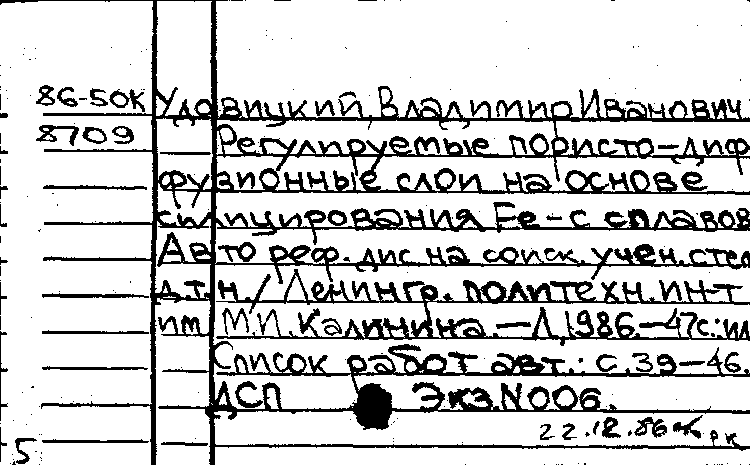 86-50К Удовицкий, Владимир Иванович
8709 Регулируемые пористо-диф
фузионные слои на основе
силицирования Fe-C сплавов
Автореф. дис. на соиск. учен. степ
д.т.н. / Ленингр. политехн. ин-т
им М.И. Калинина. – Л, 1986. – 47с.: ил
Список работ авт.: с. 39-46.
ДСП Экз. N 006.
22.12.86
5